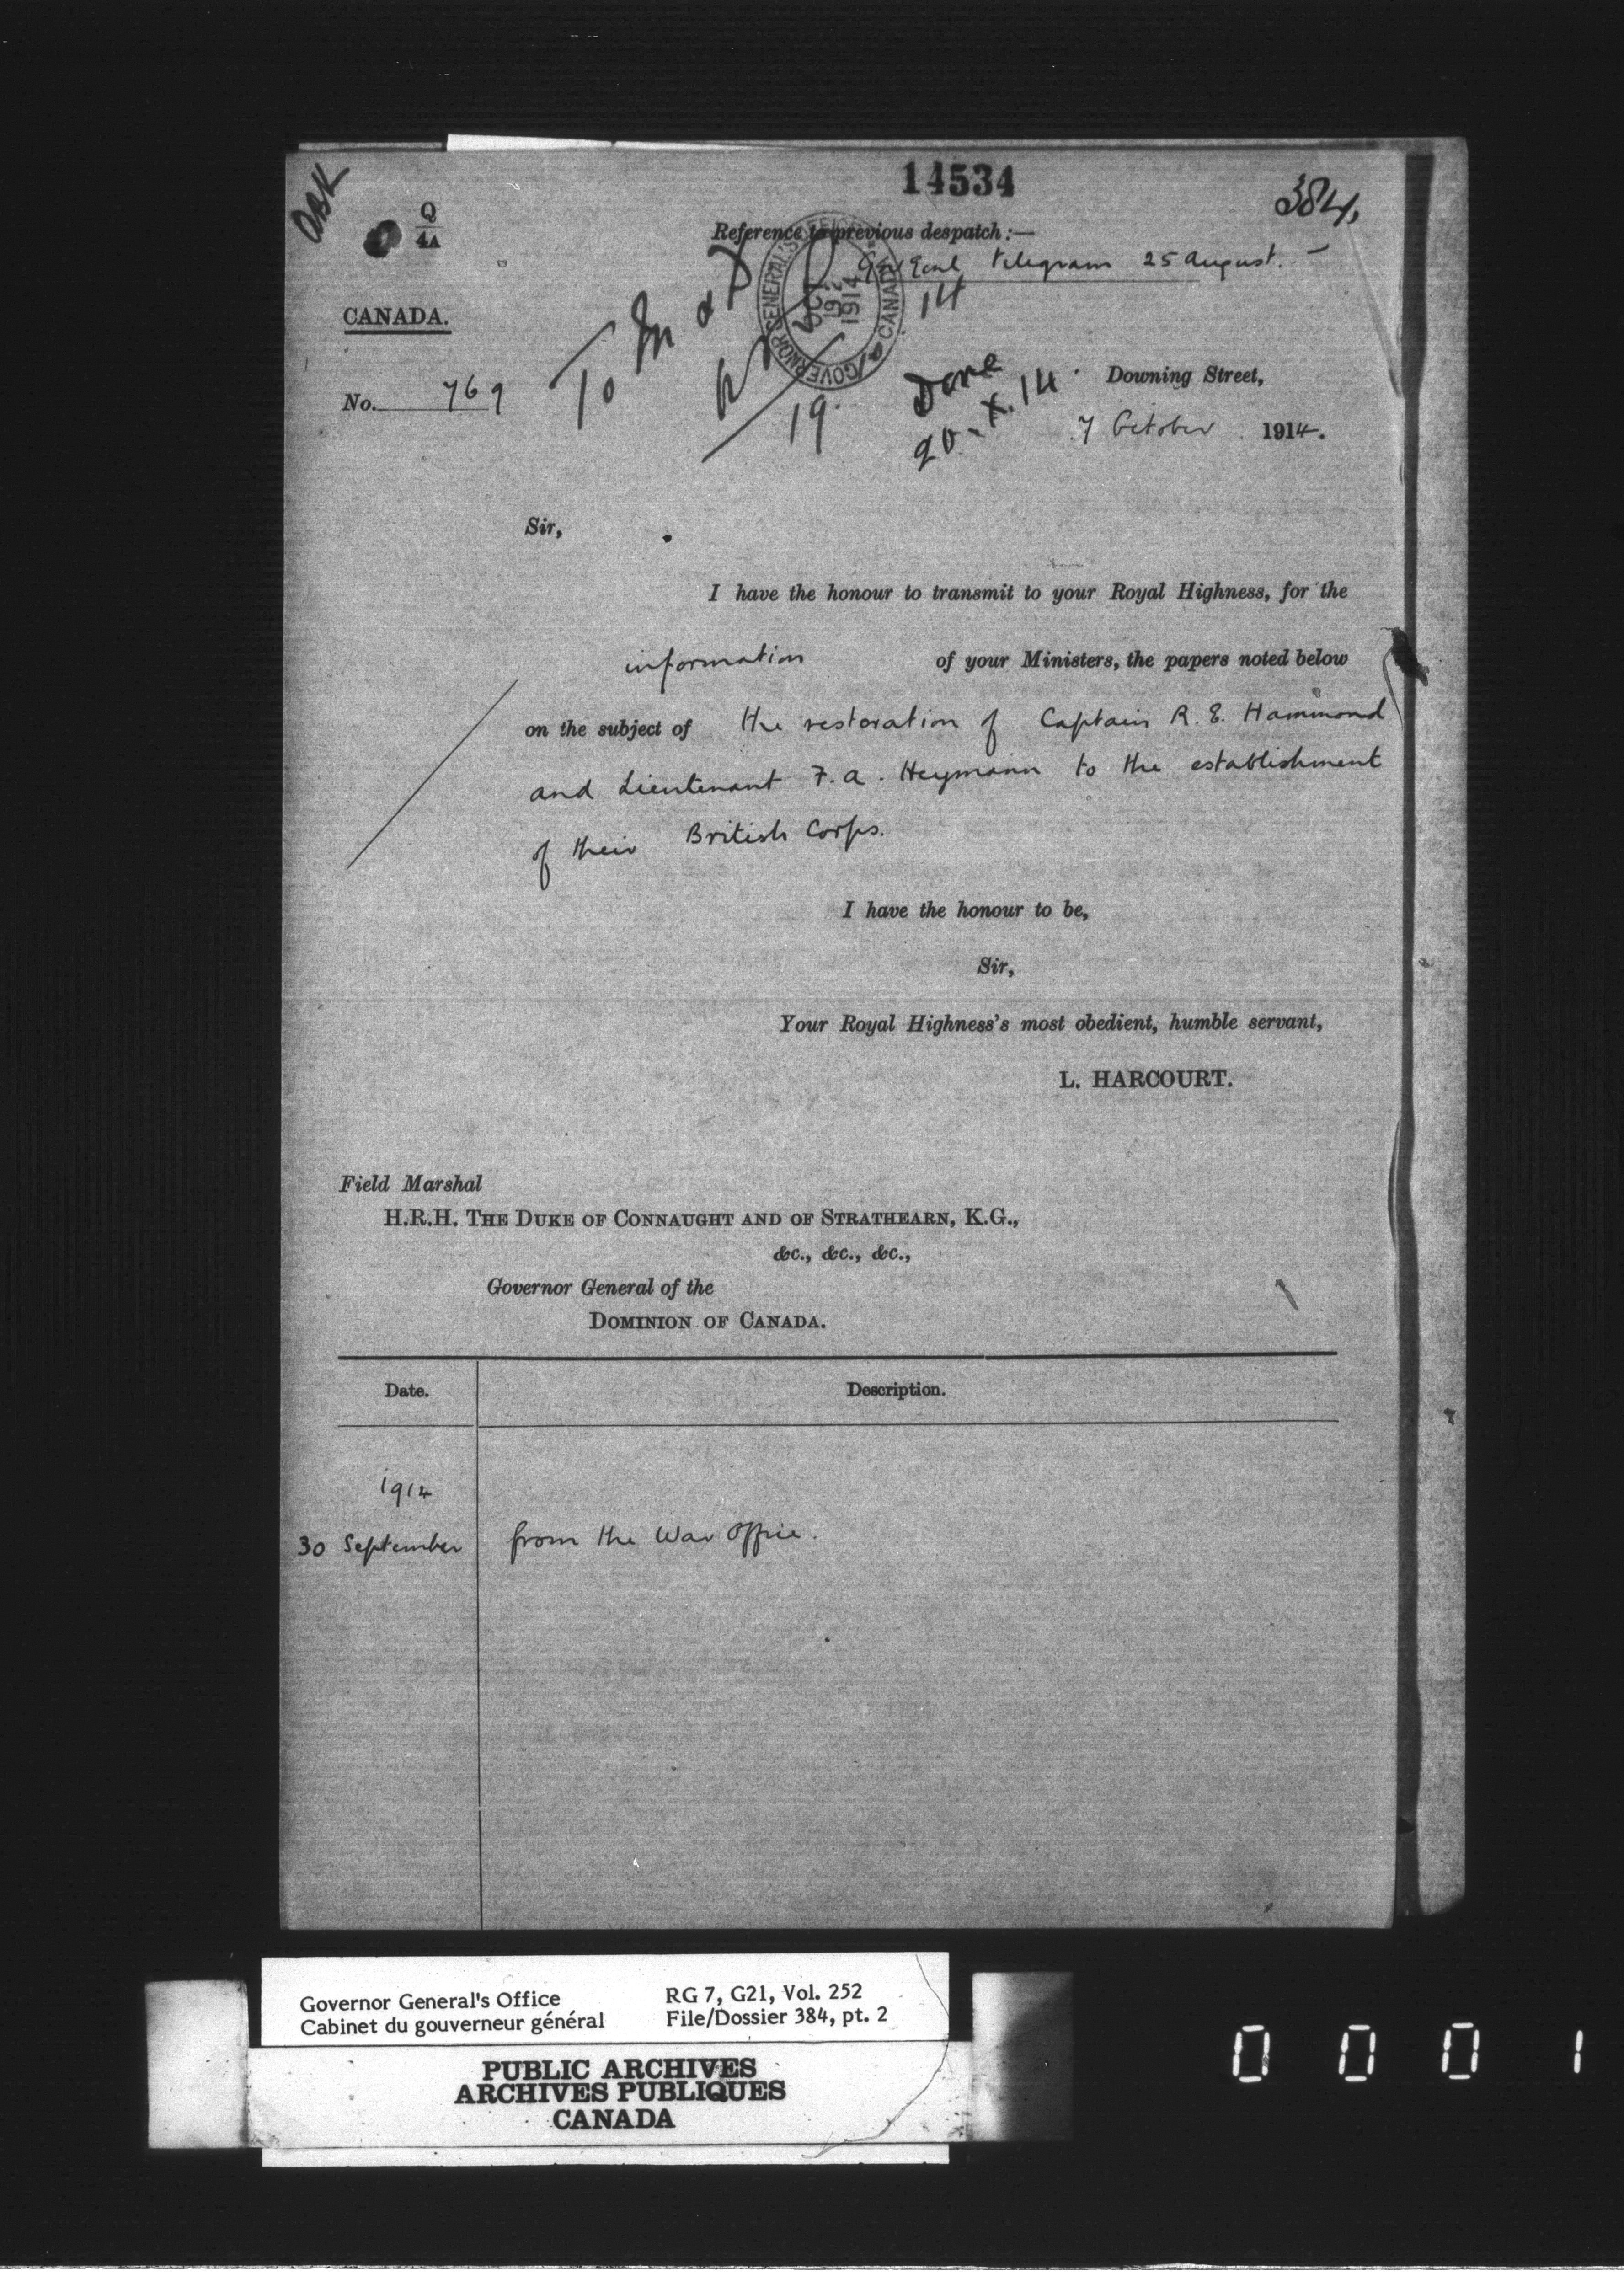 14534
384,
Q
4A
Reference to previous despatch:—
Gov Genl telegram 25 August. —
GOVERNOR GENERAL'S OFFICE
CANADA
OCT
19
1914
CANADA.
To M & D
14
Done
20.X.14
19.
No. 769
Downing Street,
7 October 1914.
Sir,
I have the honour to transmit to your Royal Highness, for the
information of your Ministers, the papers noted below
on the subject of the restoration of Captain R. E. Hammond
and Lieutenant F. A. Heymann to the establishment
of their British Corps.
I have the honour to be,
Sir,
Your Royal Highness's most obedient, humble servant,
L. HARCOURT.
Field Marshal
H.R.H. THE DUKE OF CONNAUGHT AND OF STRATHEARN, K.G.,
&c., &c., &c.,
Governor General of the
DOMINION OF CANADA.
Date. Description.
1914
30 September from the War Office.
Governor General's Office RG 7, G21, Vol. 252
Cabinet du gouverneur général File/Dossier 384, pt. 2
PUBLIC ARCHIVES
ARCHIVES PUBLIQUES
CANADA
0001